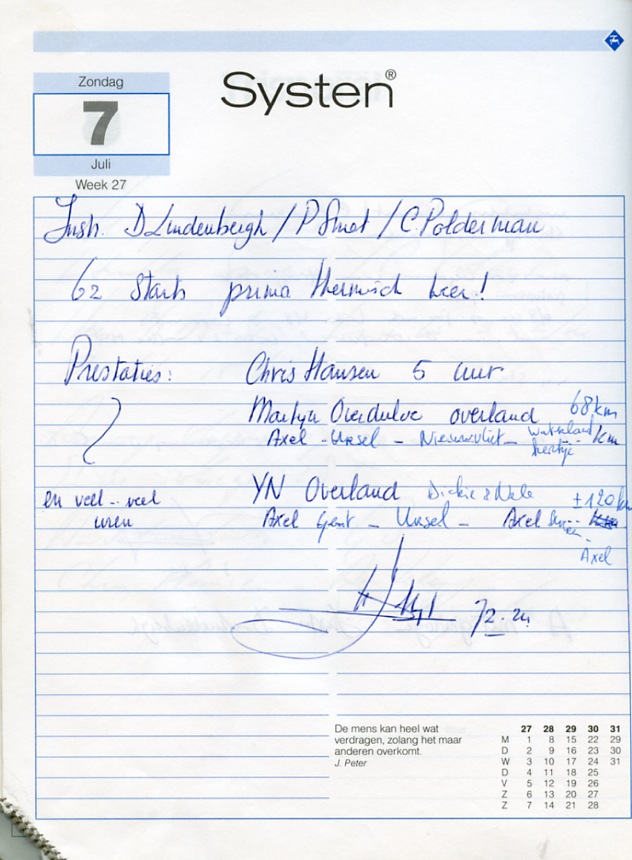 Systen®
Zondag
7
Juli
Week 27
Instr. D Lindenbergh / P Smet / C. Polderman
62 Starts prima thermisch weer!
Prestaties: Chris Hansen 5 uur
Martijn Overdulve overland 68 km
Axel - Ursel - Nieuwvliet - km
YN Overland ± 120 km
en veel - veel
uren
Axel Gent - Ursel - Axel
Axel
De mens kan heel wat
verdragen, zolang het maar
anderen overkomt.
J. Peter
27 28 29 30 31
M 1 8 15 22 29
D 2 9 16 23 30
W 3 10 17 24 31
D 4 11 18 25
V 5 12 19 26
Z 6 13 20 27
Z 7 14 21 28